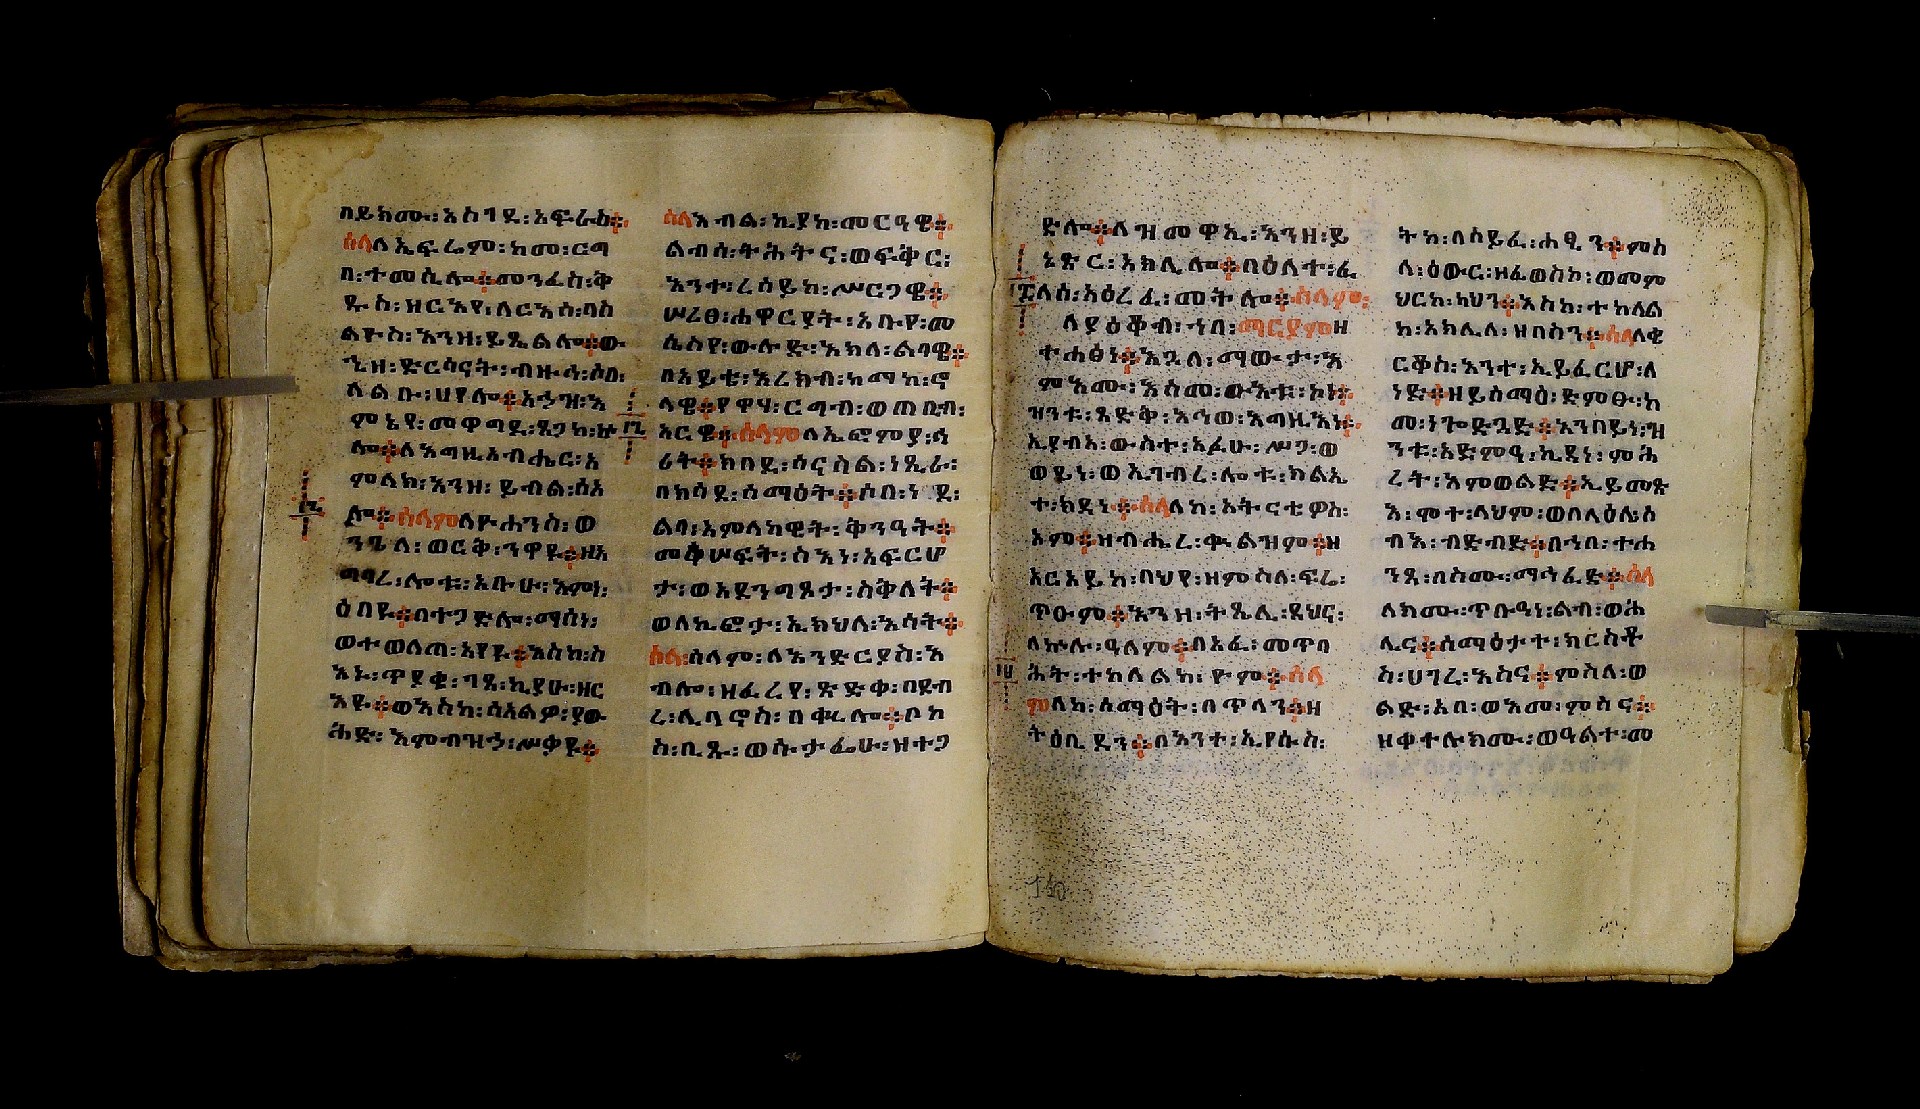 በይክሙ፡እስገዲ፡አፍራስ።
ሰላለኤፍሬም፡ከመ፡ርግ
በ፡ተመሲሎ።መንፈስ፡ቅ
ዱስ፡ዘርእየ፡ለርእሰ፡ባስ
ልዮስ፡እንዘ፡ይጼልሎ።ው
ኂዘ፡ድርሳናት፡ብዙኅ፡ሶበ፡
ለልቡ፡ሀየሎ።አኀዝ፡እ
ምኔየ፡መዋግደ፡ጸጋከ፡ኵ
ሎ።ለእግዚአብሔር፡አ
ምላክ፡እንዘ፡ይብል፡ሰአ
ሎ።ሰላምለዮሐንስ፡ወ
ንጌለ፡ወርቅ፡ንዋዩ።ዘአ
ግብረ፡ሎቱ፡አቡሁ፡እምነ፡
ዕበዩ።በተጋድሎ፡ማሰነ፡
ወተወለጠ፡አየዩ።እስከ፡ስ
እኑ፡ጥያቄ፡ገጸ፡ኪያሁ፡ዘር
እዩ።ወእስከ፡ሰአልዎ፡ያው
ሕድ፡እምብዝኅ፡ሥቃዩ።
ሰላእብል፡ኪያከ፡መርዓዌ።
ልብሰ፡ትሕትና፡ወፍቅር፡
እንተ፡ረሰይከ፡ሥርጋዌ።
ሠረፀ፡ሐዋርያት፡አቡየ፡መ
ሲስየ፡ውሉድ፡እክለ፡ልባዌ።
በአይቴ፡እረክብ፡ከማከ፡ኖ
ላዌ።የዋሃ፡ርግብ፡ወጠቢበ፡
አርዌ።ሰላምለኤፎምያ፡ኅ
ሪት።ክበደ፡ዕኖስል፡ነጺራ፡
በክሳደ፡ሰማዕት።ሶበ፡ነደ፡
ልባ፡አምላካዊት፡ቅንዓት።
መቅሠፍት፡ስእነ፡አፍርሆ
ታ፡ወአደንግጾታ፡ስቅለት።
ወለኪፎታ፡ኢክህለ፡እሳት።
ሰላ፡ሰላም፡ለእንድርያስ፡እ
ብሎ፡ዝፈረየ፡ጽድቀ፡በደብ
ረ፡ሊባኖስ፡በቀሬሎ።ቦከ
ስ፡ቢጹ፡ወሱታፌሁ፡ዝተጋ
ድሎ።ለዝመዋኢ፡እንዘ፡ይ
ኔጽር፡አክሊሎ።በዕለተ፡ፈ
ለሰ፡አዕረፈ፡መትሎ።ሰላም፡
ለያዕቆብ፡ኀበ፡ማርያምዘ
ተሐፅነ።እጓለ፡ማውታ፡እ
ምእሙ፡እስመ፡ውእቱ፡ኮነ።
ዝንቱ፡ጻድቅ፡እኅወ፡እግዚእነ።
ኢያብአ፡ውስተ፡አፈሁ፡ሥጋ፡ወ
ወይነ፡ወኢገብረ፡ሎቱ፡ክልኤ
ተ፡ክዳነ።ሰላለከ፡አትናቴዎስ፡
እም።ዝብሔረ፡ቍልዝም።ዘ
አርአይከ፡በህየ፡ዘምስለ፡ፍሬ፡
ጥዑም።እንዘ፡ትጼሊ፡ደህና፡
ለኵሉ፡ዓለም።በአፈ፡መጥባ
ሕት፡ተከለልከ፡ዮም።ሰላ
ምለከ፡ሰማዕት፡በጥላን።ዘ
ትዕቢ፡ደን።በእንተ፡ኢየሱስ፡
ትከ፡በሰይፈ፡ሐፂን።ምስ
ለ፡ዕውር፡ዘፈወስኮ፡ወመም
ህርከ፡ካህን።እስከ፡ተከለል
ከ፡አክሊለ፡ዘበስን።ሰላለቂ
ርቆስ፡እንተ፡ኢይፈርሆ፡ለ
ነድ።ዘይሰማዕ፡ድምፁ፡ከ
መ፡ነጐድጓድ።እንበይነ፡ዝ
ንቱ፡አድምዓ፡ኪዳነ፡ምሕ
ረት፡እምወልድ።ኢይመጽ
እ፡ሞተ፡ላህም፡ወበላዕሌሰ
ብእ፡ብድብድ።በኀበ፡ተሐ
ንጸ፡በስሙ፡ማኅፈድ።ሰላ
ለክሙ፡ጥቡዓነ፡ልብ፡ወሕ
ሊና።ሰማዕታተ፡ክርስቶ
ስ፡ሀገረ፡እስና።ምስለ፡ወ
ልድ፡አበ፡ወእመ፡ምስና።
ዘቀተሉክሙ፡ወዓልተ፡መ
140